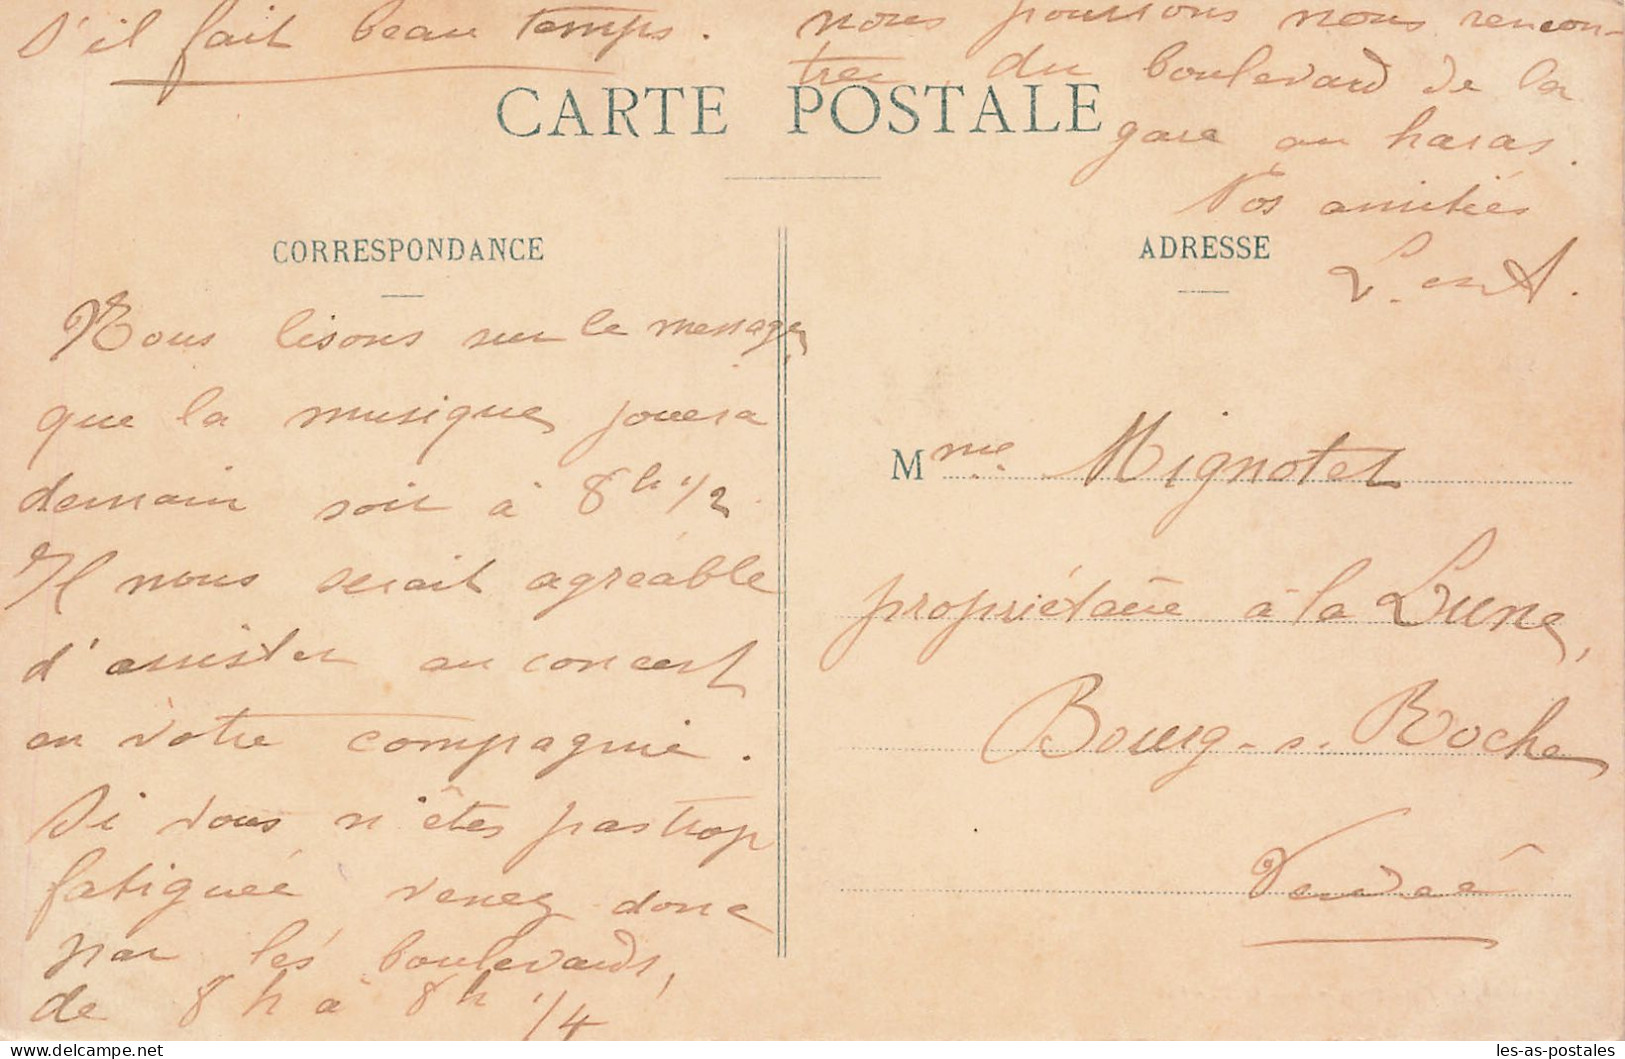 S'il fait beau temps. nous pourrons nous rencon-
trer du boulevard de la
gare au haras.
Nos amitiés
L. et A.
CARTE POSTALE
CORRESPONDANCE
ADRESSE
Nous lisons sur le messager
que la musique jouera
demain soir à 8h 1/2.
Il nous serait agréable
d'assister au concert
en votre compagnie.
Si vous n'êtes pas trop
fatiguée venez donc
par les boulevards,
de 8 h à 8h 1/4
Mme. Mignotet
propriétaire à la Lune,
Bourg-s. Roche
Vendée
Delcampe.net
les-as-postales